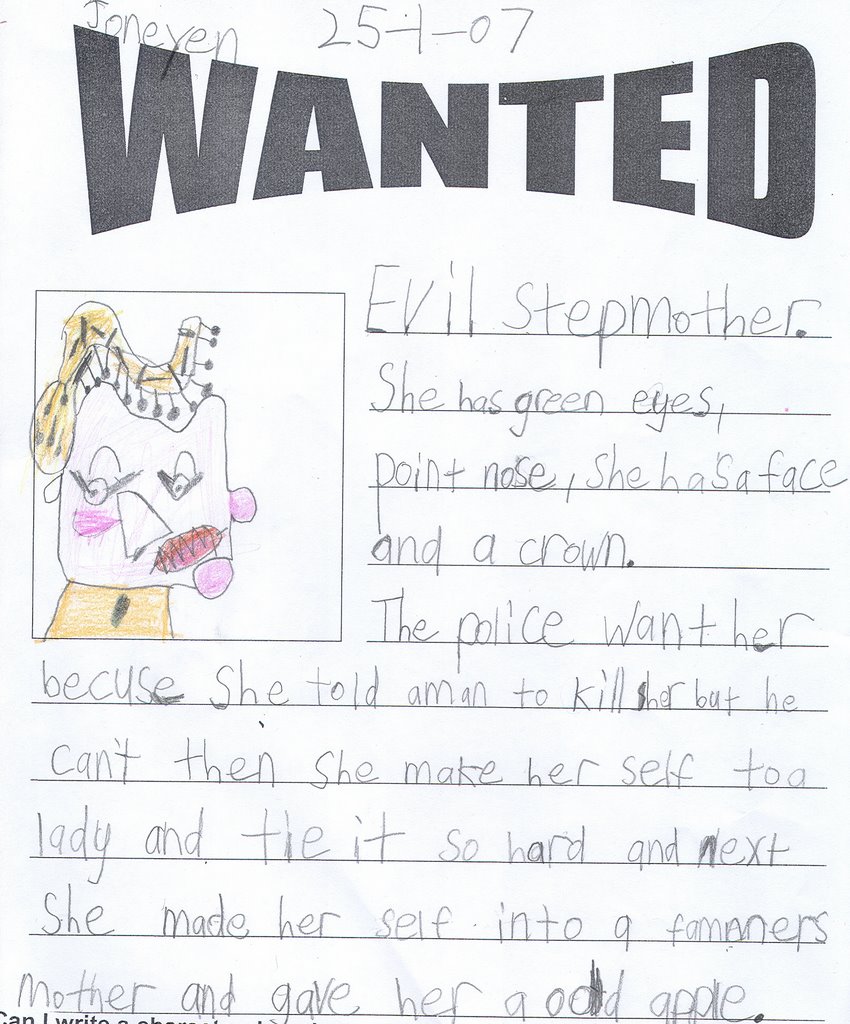 Joneyen 25-1-07
WANTED
Evil Stepmother.
She has green eyes,
point nose, She has a face
and a crown.
The police want her
becuse She told aman to kill her but he
can't then She make her self too
lady and tie it so hard and next
She made her self into a fammners
mother and gave her a apple.
Can I write a